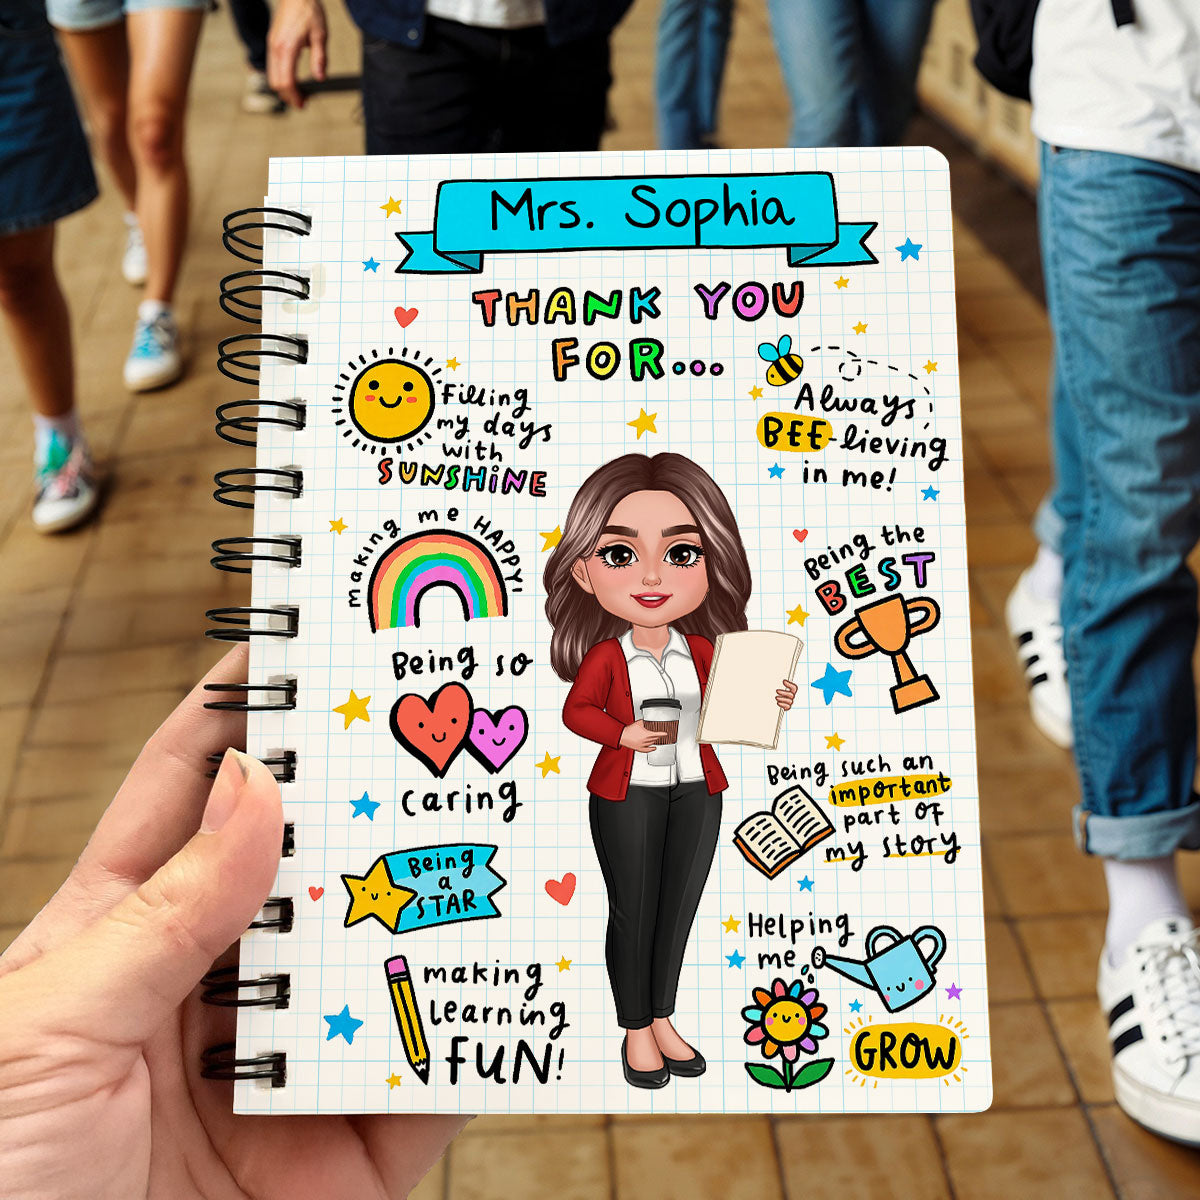 Mrs. Sophia
THANK YOU
FOR...
Filling
my days
with
SUNSHINE
making me HAPPY!
Being so
caring
Being
a
STAR
making
Learning
FUN!
Always
BEE-lieving
in me!
Being the
BEST
Being such an
important
part of
my story
Helping
me
GROW